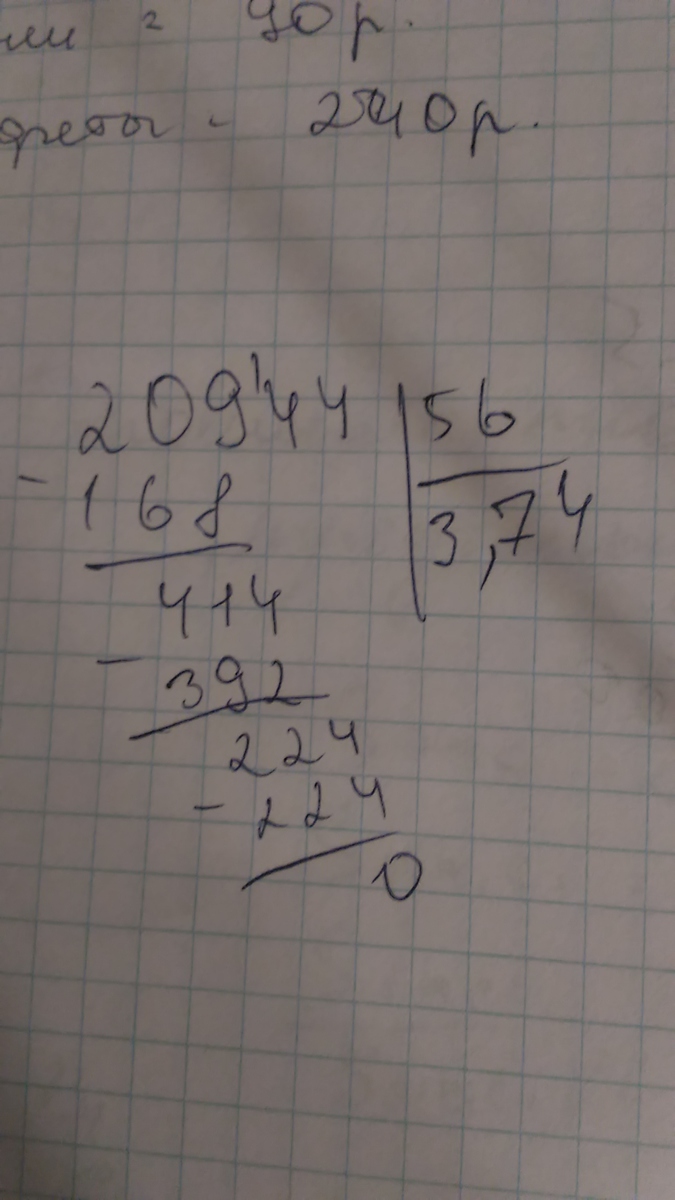 90 р.
- 240 р.
209'44 | 56
- 168
3,74
414
- 392
224
- 224
0